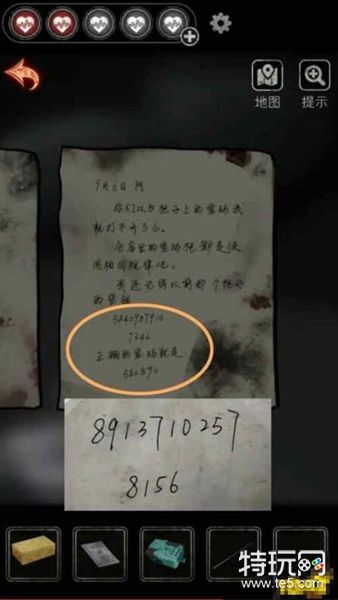 地图
提示
9月6日 阴
你们以为柜子上的密码我
就打不开了么。
仓库里的密码柜都是使
用相同规律吧。
我还记得以前那个柜子
的密码
7346
正确的密码就是
8913710257
8156
特玩网
www.te5.com